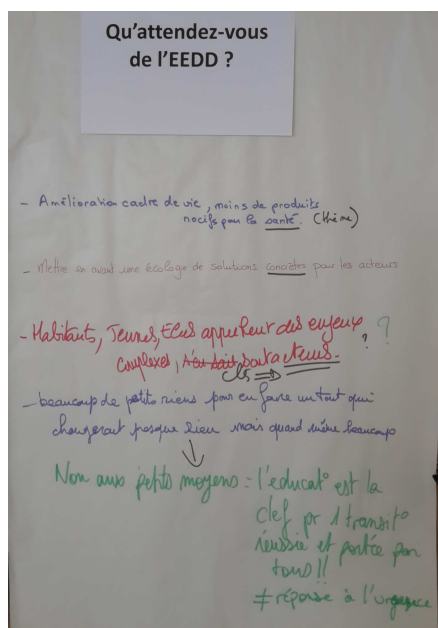 Qu'attendez-vous
de l'EEDD ?
- Amélioration cadre de vie, moins de produits
nocifs pour la santé. (thème)
- Mettre en avant une écologie de solutions concrètes pour les acteurs
- Habitants, Jeunes, Elus des enjeux ? ?
complexes, sont acteurs.
- beaucoup de petits riens pour en faire un tout qui
changerait presque rien mais quand même beaucoup
Non aux petits moyens = l'éducat° est la
clef pr 1 transit°
réussie et portée par
tous !!
≠ réponse à l'urgence